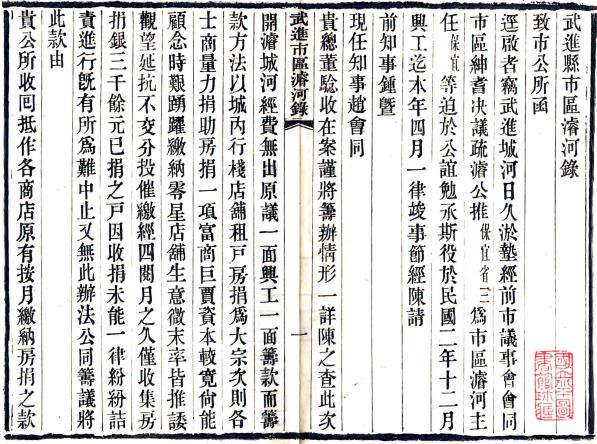 武進縣市區濬河錄
致市公所函
逕啟者竊武進城河日久淤墊經前市議事會會同
市區紳耆決議疏濬公推保宜省三爲市區濬河主
任保宜等迫於公誼勉承斯役於民國二年十二月
興工迄本年四月一律竣事節經陳請
前知事鍾暨
現任知事趙會同
貴總董騐收在案謹將籌辦情形一詳陳之查此次
武進市區濬河錄
一
開濬城河經費無出原議一面興工一面籌款而籌
款方法以城內行棧店舖租戶房捐爲大宗次則各
士商量力捐助房捐一項富商巨賈資本較寬尙能
顧念時艱踴躍繳納零星店舖生意微末率皆推諉
觀望延抗不交分投催繳經四閱月之久僅收集房
捐銀三千餘元已捐之戶因收捐未能一律紛紛詰
責進行旣有所爲難中止又無此辦法公同籌議將
此款由
貴公所收回抵作各商店原有按月繳納房捐之款